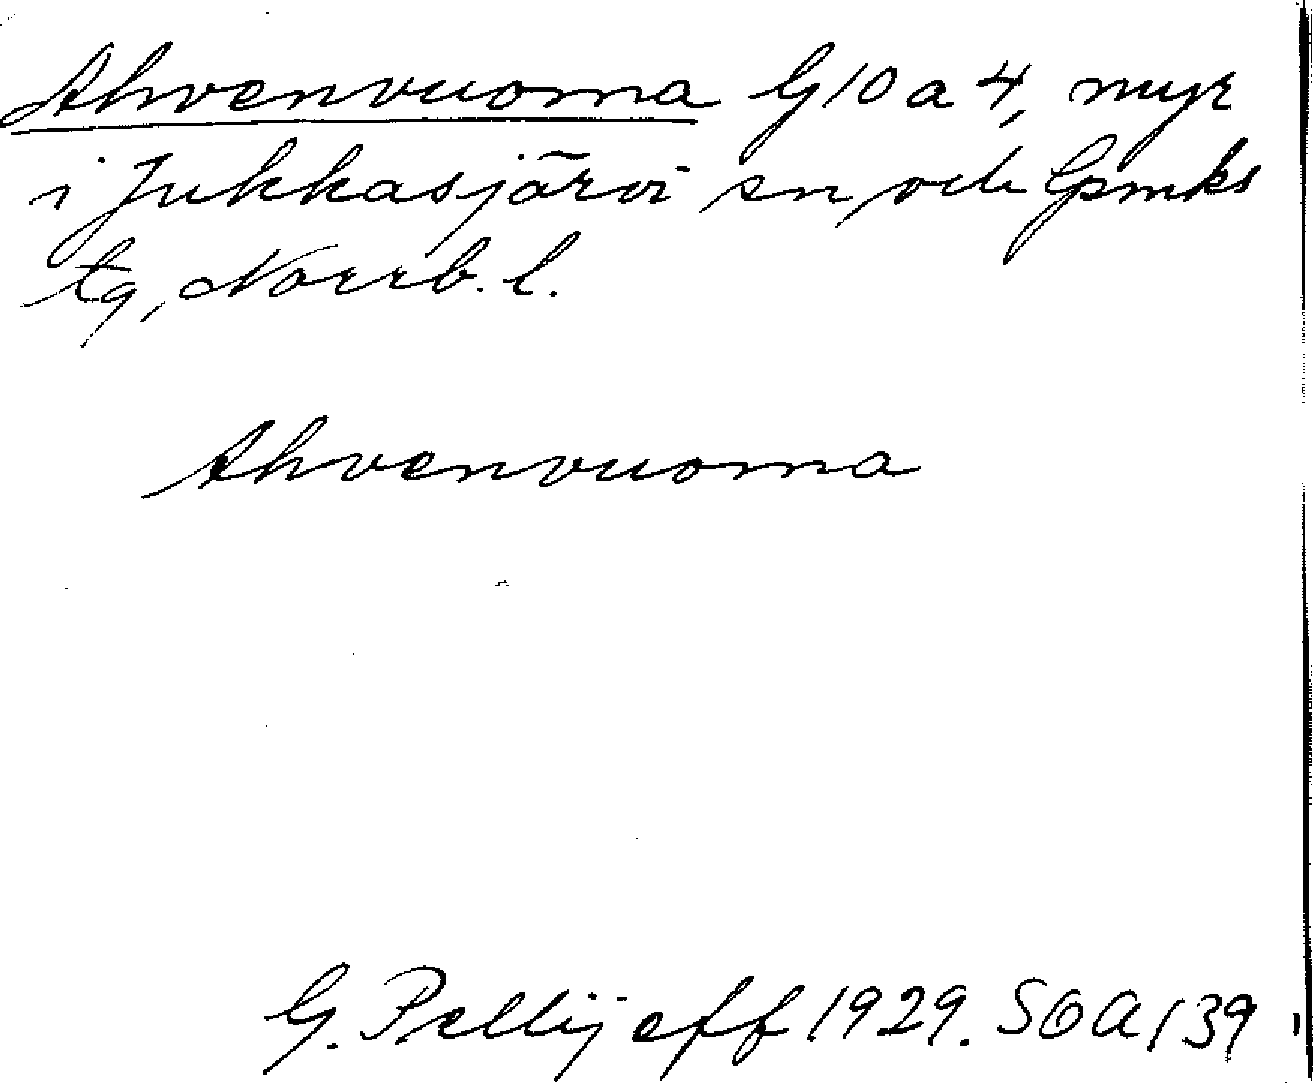 Ahvenvuoma G10a4, myr
i Jukkasjärvi sn och Gpmks
tg, Norrb. l.
Ahvenvuoma
G. Pellijeff 1929. SOA 139